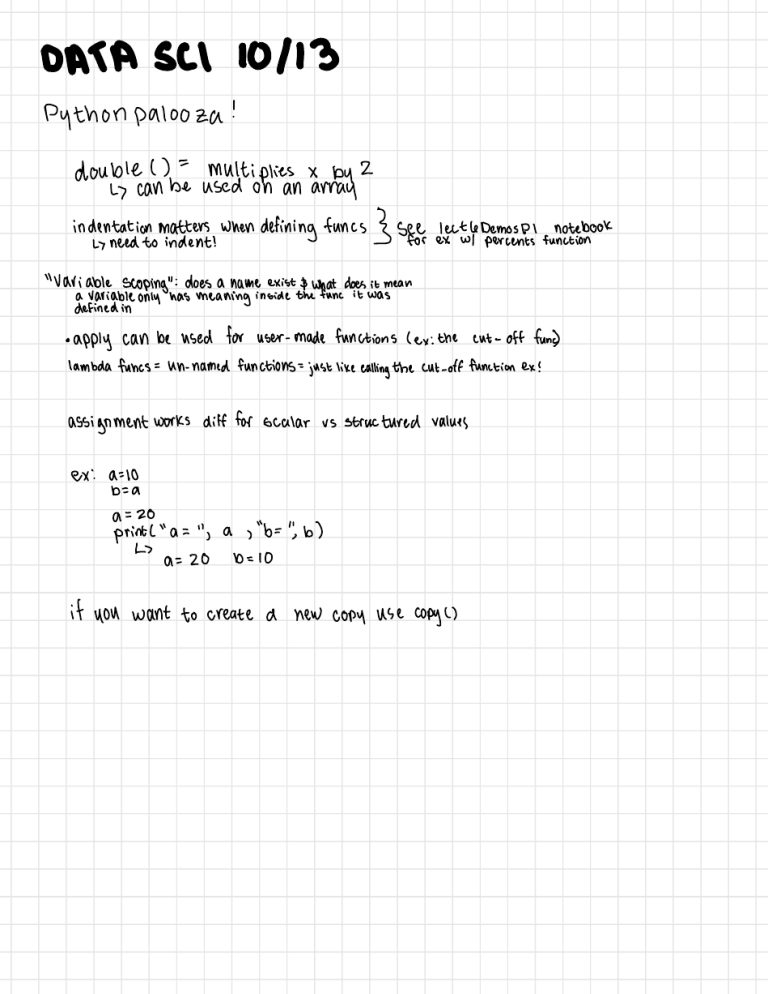 DATA SCI 10/13
Python palooza!
double() = multiplies x by 2
↳ can be used on an array
indentation matters when defining funcs } see lect6DemosP1 notebook
↳ need to indent! for ex w/ percents function
"Variable Scoping": does a name exist & what does it mean
a variable only has meaning inside the func it was
defined in
•apply can be used for user-made functions (ex: the cut-off func)
lambda funcs = un-named functions = just like calling the cut-off function ex!
assignment works diff for scalar vs structured values
ex: a=10
b=a
a=20
print("a= ", a ,"b= ", b)
↳
a=20 b=10
if you want to create a new copy use copy()